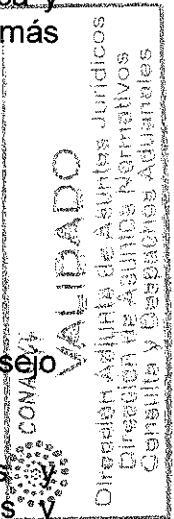 más
sejo
y
s y
CONAVI
VALIDADO
Dirección Adjunta de Asuntos Jurídicos
Dirección de Asuntos Normativos
Consulta y Despachos Aduanales